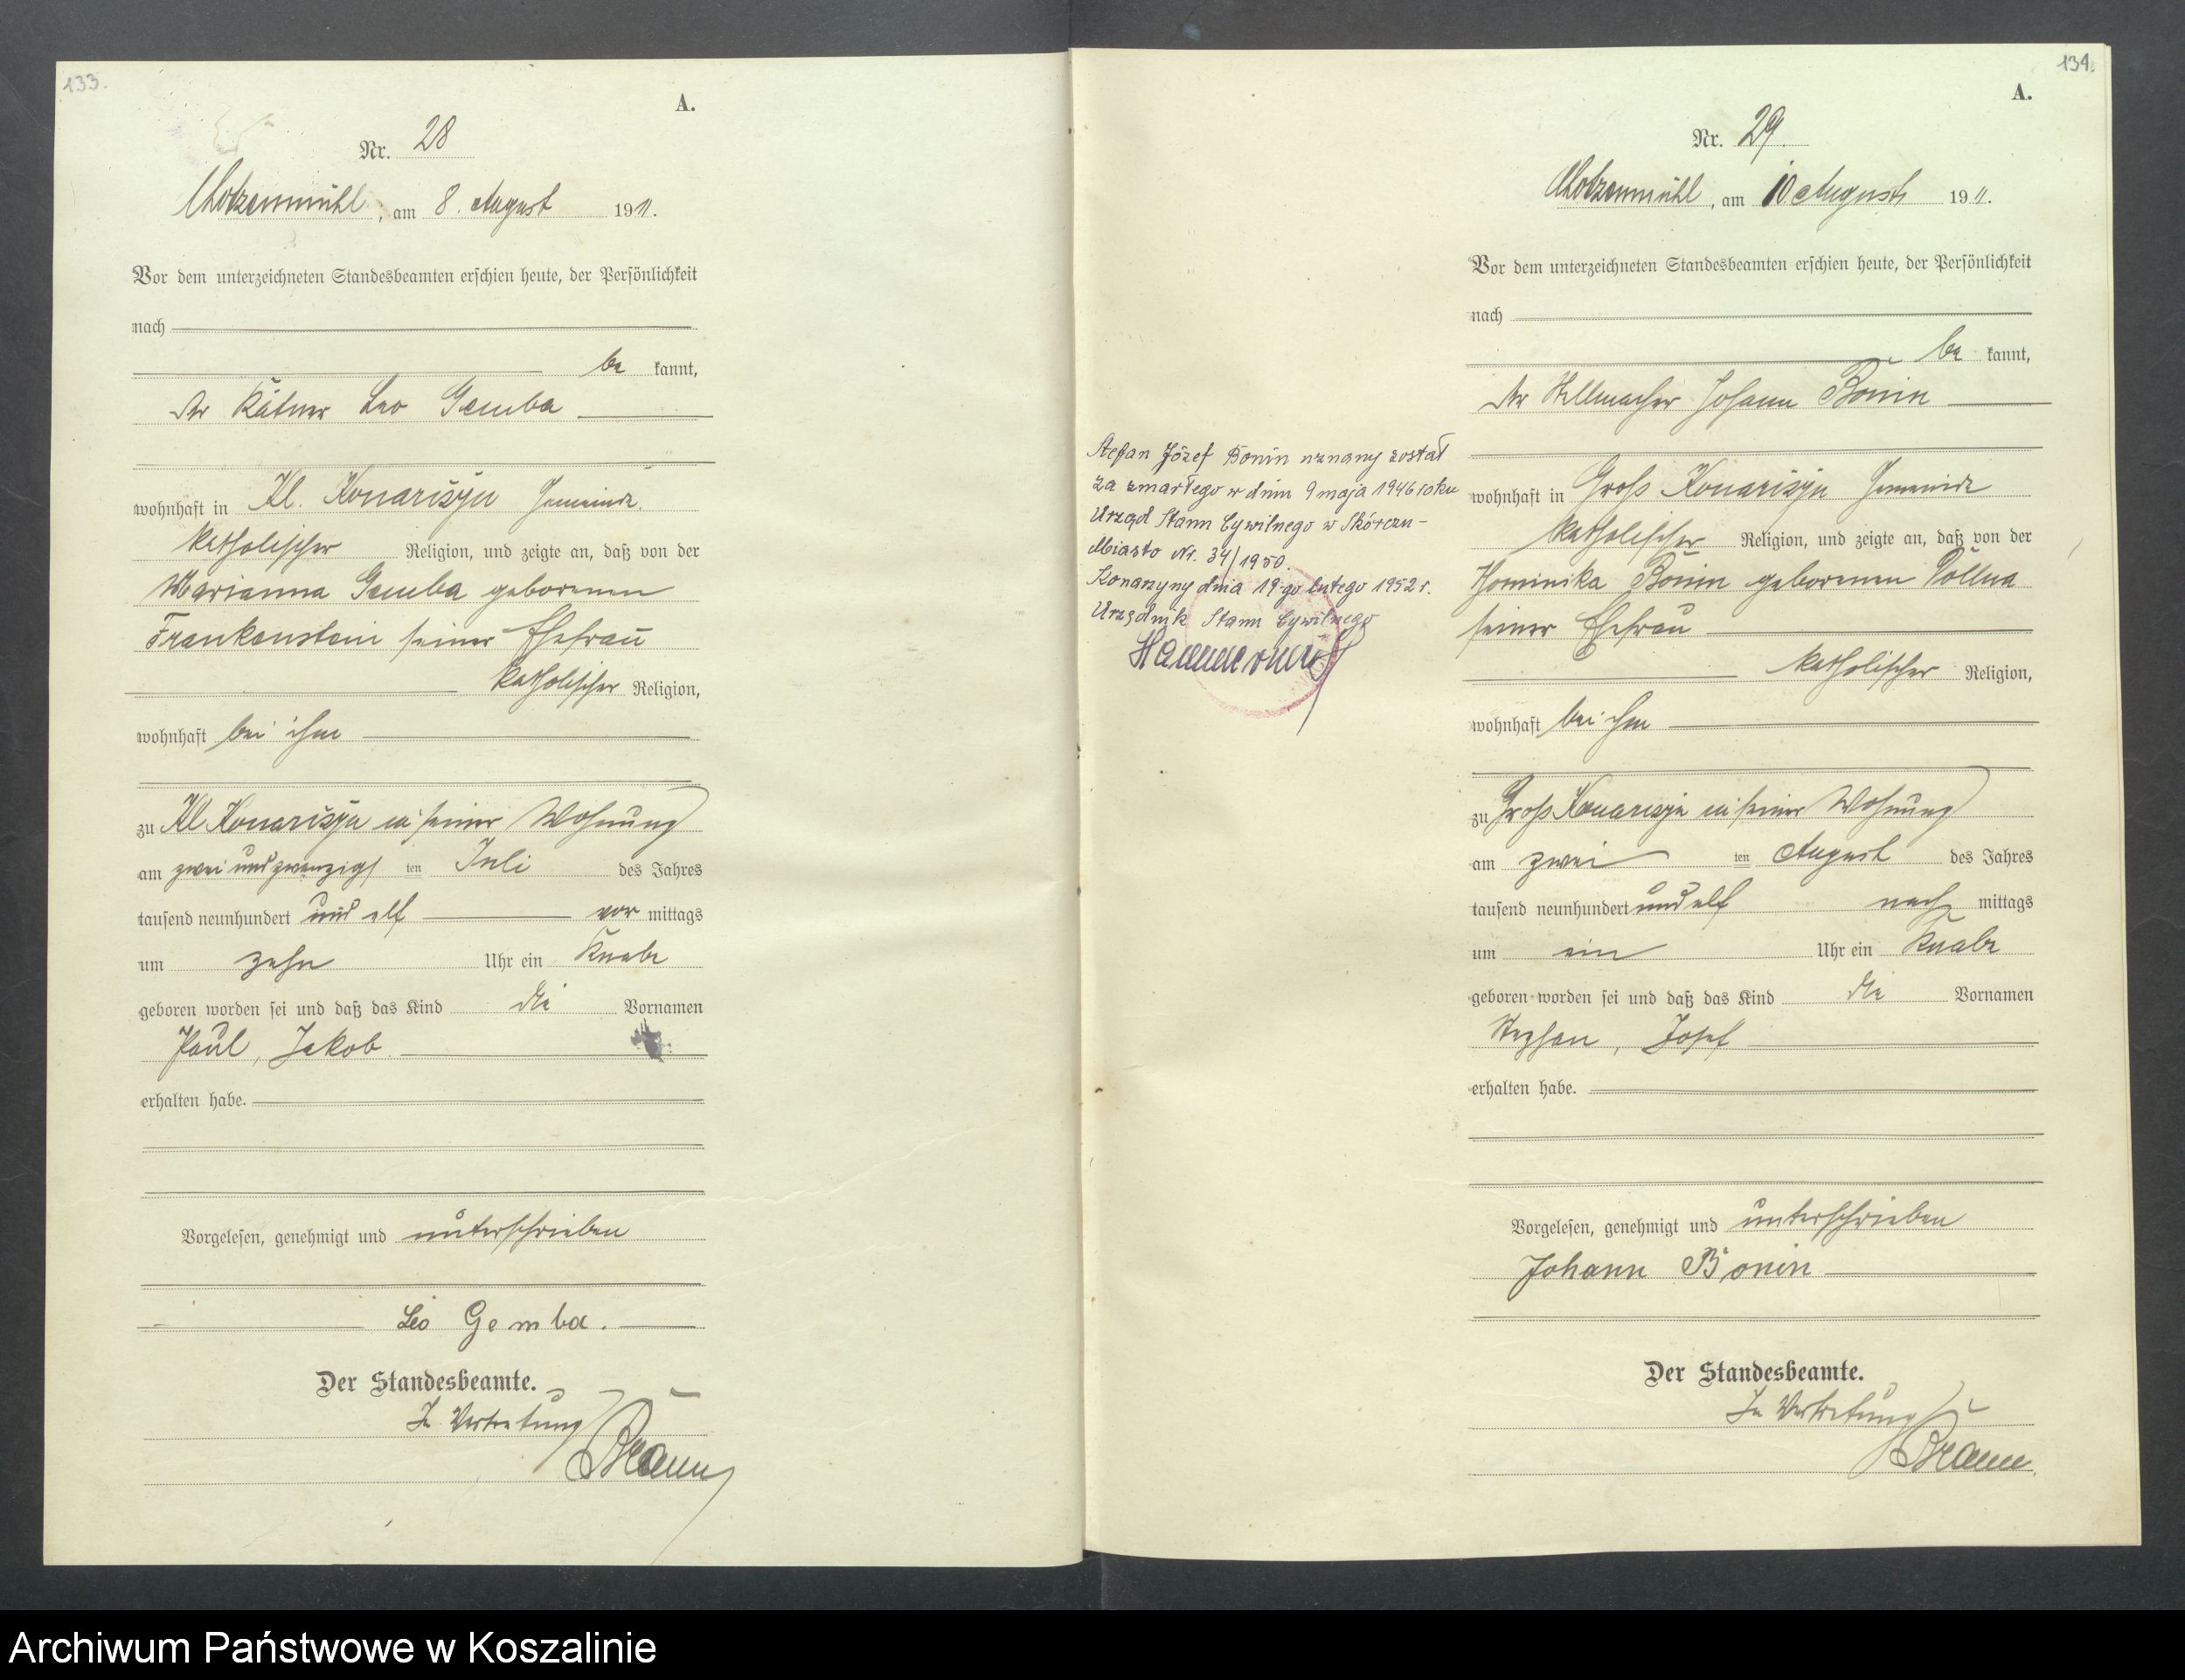 133.
A.
Nr. 28
Chotzenmühl, am 8. August 1911.
Vor dem unterzeichneten Standesbeamten erschien heute, der Persönlichkeit
nach
be kannt,
der Kätner Leo Gemba
wohnhaft in Kl. Konarszyn Gemeinde
katholischer Religion, und zeigte an, daß von der
Marianna Gemba geborenen
Frankenstein seiner Ehefrau
katholischer Religion,
wohnhaft bei ihm
zu Kl Konarszyn in seiner Wohnung
am zwei und zwanzigs ten Juli des Jahres
tausend neunhundert und elf vor mittags
um zehn Uhr ein Knabe
geboren worden sei und daß das Kind die Vornamen
Paul, Jakob
erhalten habe.
Vorgelesen, genehmigt und unterschrieben
Leo Gemba.
Der Standesbeamte.
In Vertretung
Braun
134.
A.
Nr. 29.
Chotzenmühl, am 10 August 1911.
Vor dem unterzeichneten Standesbeamten erschien heute, der Persönlichkeit
nach
be kannt,
der Stellmacher Johann Bonin
wohnhaft in Groß Konarszyn Gemeinde
katholischer Religion, und zeigte an, daß von der
Bonin geborenen
seiner Ehefrau
katholischer Religion,
wohnhaft bei ihm
zu Groß Konarszyn in seiner Wohnung
am zwei ten August des Jahres
tausend neunhundert und elf nach mittags
um ein Uhr ein Knabe
geboren worden sei und daß das Kind die Vornamen
Stephan, Josef
erhalten habe.
Vorgelesen, genehmigt und unterschrieben
Johann Bonin
Der Standesbeamte.
In Vertretung
Braun
Stefan Józef Bonin uznany został
za zmarłego w dniu 9 maja 1946 roku
Urząd Stanu Cywilnego w Skórczu-
Miasto Nr. 34/1950.
Konarzyny dnia 19-go lutego 1952 r.
Urzędnik Stanu Cywilnego
Archiwum Państwowe w Koszalinie